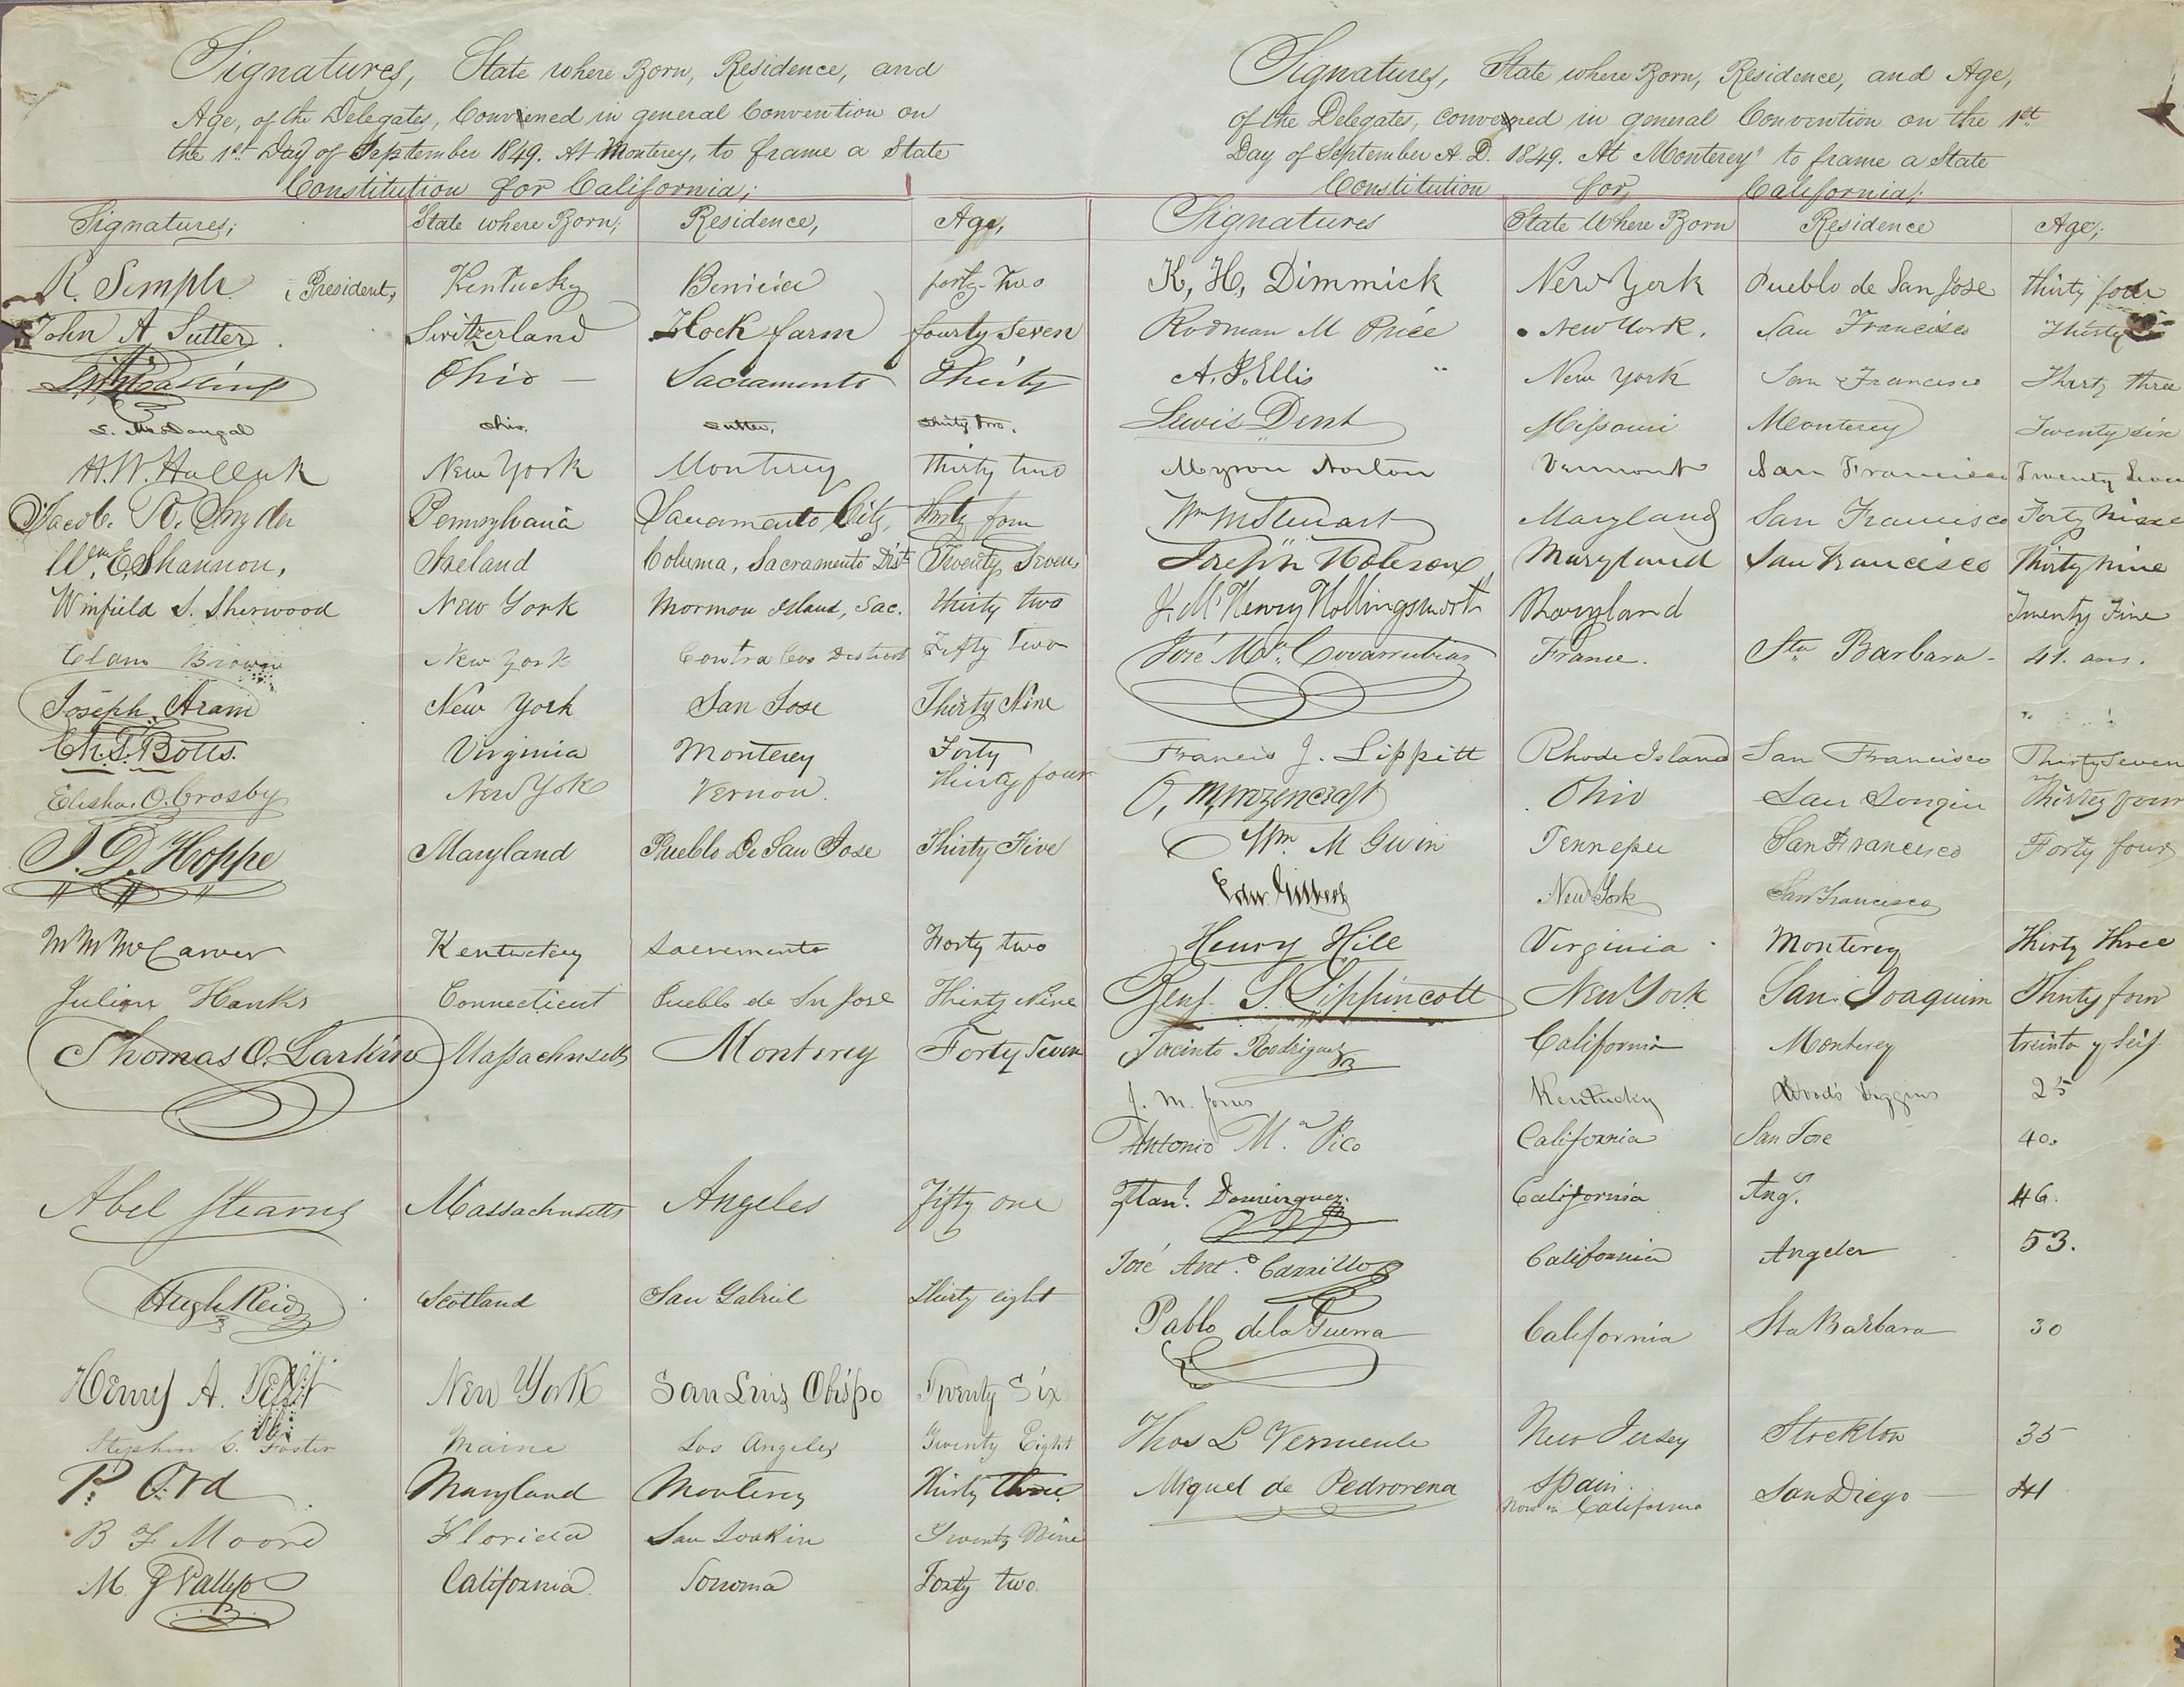 Signatures, State where Born, Residence, and
Age, of the Delegates, Convened in general Convention on
the 1st Day of September 1849. At Monterey, to frame a State
Constitution for California;
Signatures; State where Born; Residence, Age,
R. Semple President, Kentucky Benicia forty-two
John A Sutter Switzerland Hock farm fourty seven
L W Hastings Ohio — Sacramento Thirty
L. McDougal Ohio, Sutter, thirty two.
H. W. Halleck New York Monterey Thirty two
Jacob. R. Snyder Pennsylvania Sacramento City, Thirty four
Wm. E. Shannon, Ireland Columa, Sacramento Dist Twenty Seven,
Winfield S. Sherwood New York Mormon Island, Sac. thirty two
Elam Brown New York Contra Cos District Fifty two
Joseph Aram New York San Jose Thirty Nine
Ch. T. Botts. Virginia Monterey Forty
Elisha. O. Crosby New York Vernon. thirty four
J. D. Hoppe Maryland Pueblo De San Jose Thirty Five
M M McCarver Kentuckey Sacremento Forty two
Julian Hanks Connecticut Pueblo de Sn Jose Thirty Nine
Thomas O. Larkin Massachusetts Monterey Forty Seven
Abel Stearns Massachusetts Angeles Fifty one
Hugh Reid Scotland San Gabriel Thirty eight
Henry A. Tefft New York San Luis Obispo Twenty Six
Stephen C. Foster Maine Los Angeles Twenty Eight
P. Ord Maryland Monterey Thirty three.
B F Moore Florida San Joakin Twenty Nine
M. G Vallejo California. Sonoma Forty two.
Signatures, State where Born, Residence, and Age,
of the Delegates, convened in general Convention on the 1st
Day of September A. D. 1849. At Monterey" to frame a State
Constitution for, California;
Signatures State Where Born Residence Age;
K, H, Dimmick New York Pueblo de San Jose thirty four
Rodman M Price New York. San Francisco Thirty
A. J. Ellis New York San Francisco Thirty three
Lewis Dent Missouri Monterey Twenty six
Myron Norton Vermont San Francisco Twenty Seven
Wm M Steuart Maryland San Francisco Forty Nine
Joseph Hobson Maryland San Francisco Thirty Nine
J. McHenry Hollingsworth Maryland Twenty Five
José Ma. Covarrubias France. Sta Barbara - 41. ans.
Francis J. Lippitt Rhode Island San Francisco Thirty Seven
O, M, Wozencraft Ohio San Thirty four
Wm. M Gwin Tennessee San Francisco Forty four
Edw. Gilbert New York San Francisco
Henry Hill Virginia Monterey Thirty three
Benj. S. Lippincott New York San Joaquim Thirty four
Jacinto Rodriguez California Monterey treinta y seis
J. M. Jones Kentucky Wood's Diggins 25
Antonio Ma. Pico California San Jose 40.
Dominguez. California Angs. 46.
José Anto. Carrillo California Angeles 53.
Pablo de la Guerra California Sta Barbara 30
Thos L Vermeule New Jersey Stockton 35
Miguel de Pedrorena Spain. San Diego — 41
Now in California